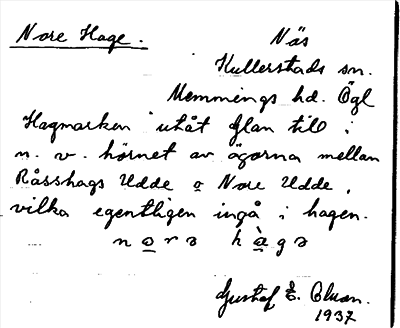 Nore Hage.
Näs
Kullerstads sn.
Memmings hd. Ögl
Hagmarken utåt Glan till i
n. v. hörnet av ägorna mellan
Råsshags Udde o Nore Udde,
vilka egentligen ingå i hagen.
Gustaf E.
1937